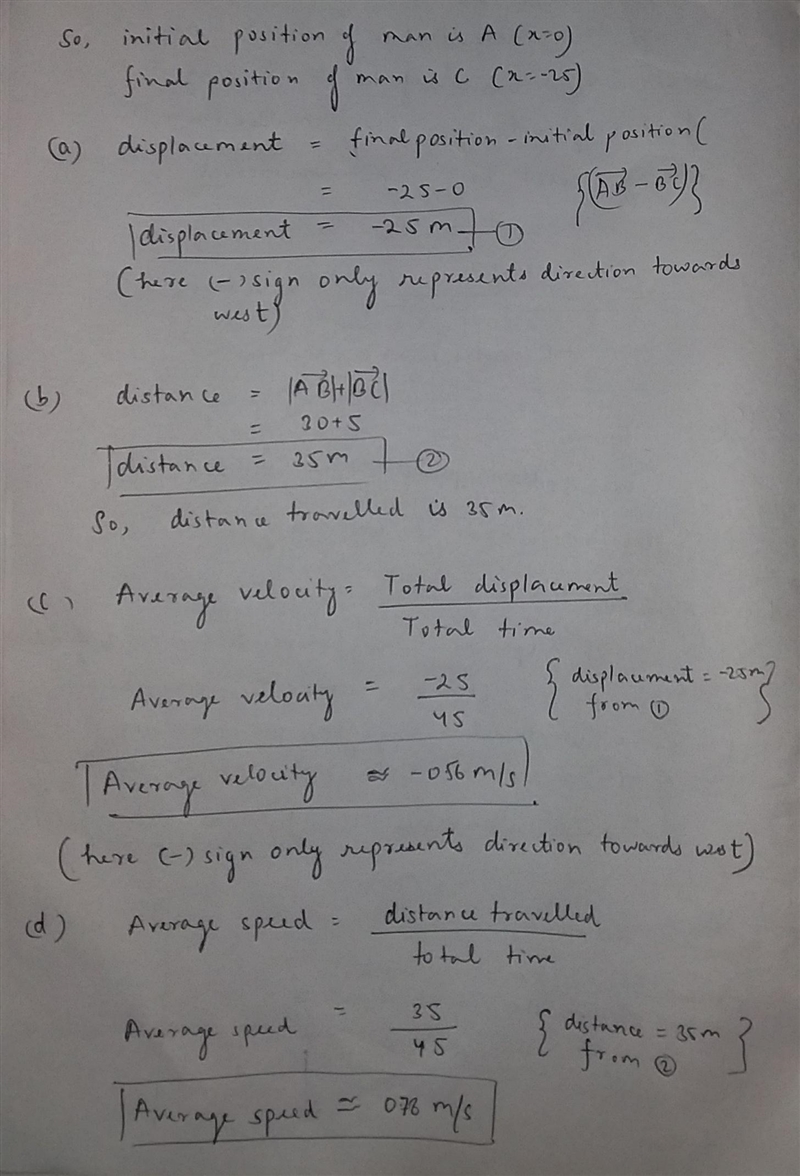 So, initial position of man is A (x=0)
final position of man is C (x=-25)
(a) displacement = final position - initial position (
= -25-0 {(AB⃗ - BC⃗)}
displacement = -25 m ①
(here (-) sign only represents direction towards
west)
(b) distance = |AB⃗|+|BC⃗|
= 30+5
distance = 35m ②
So, distance travelled is 35m.
(c) Average velocity = Total displacement
Total time
Average velocity = -25 { displacement = -25m }
45 from ①
Average velocity ≈ -056 m/s
(here (-) sign only represents direction towards west)
(d) Average speed = distance travelled
total time
Average speed = 35 { distance = 35m }
45 from ②
Average speed ≃ 078 m/s